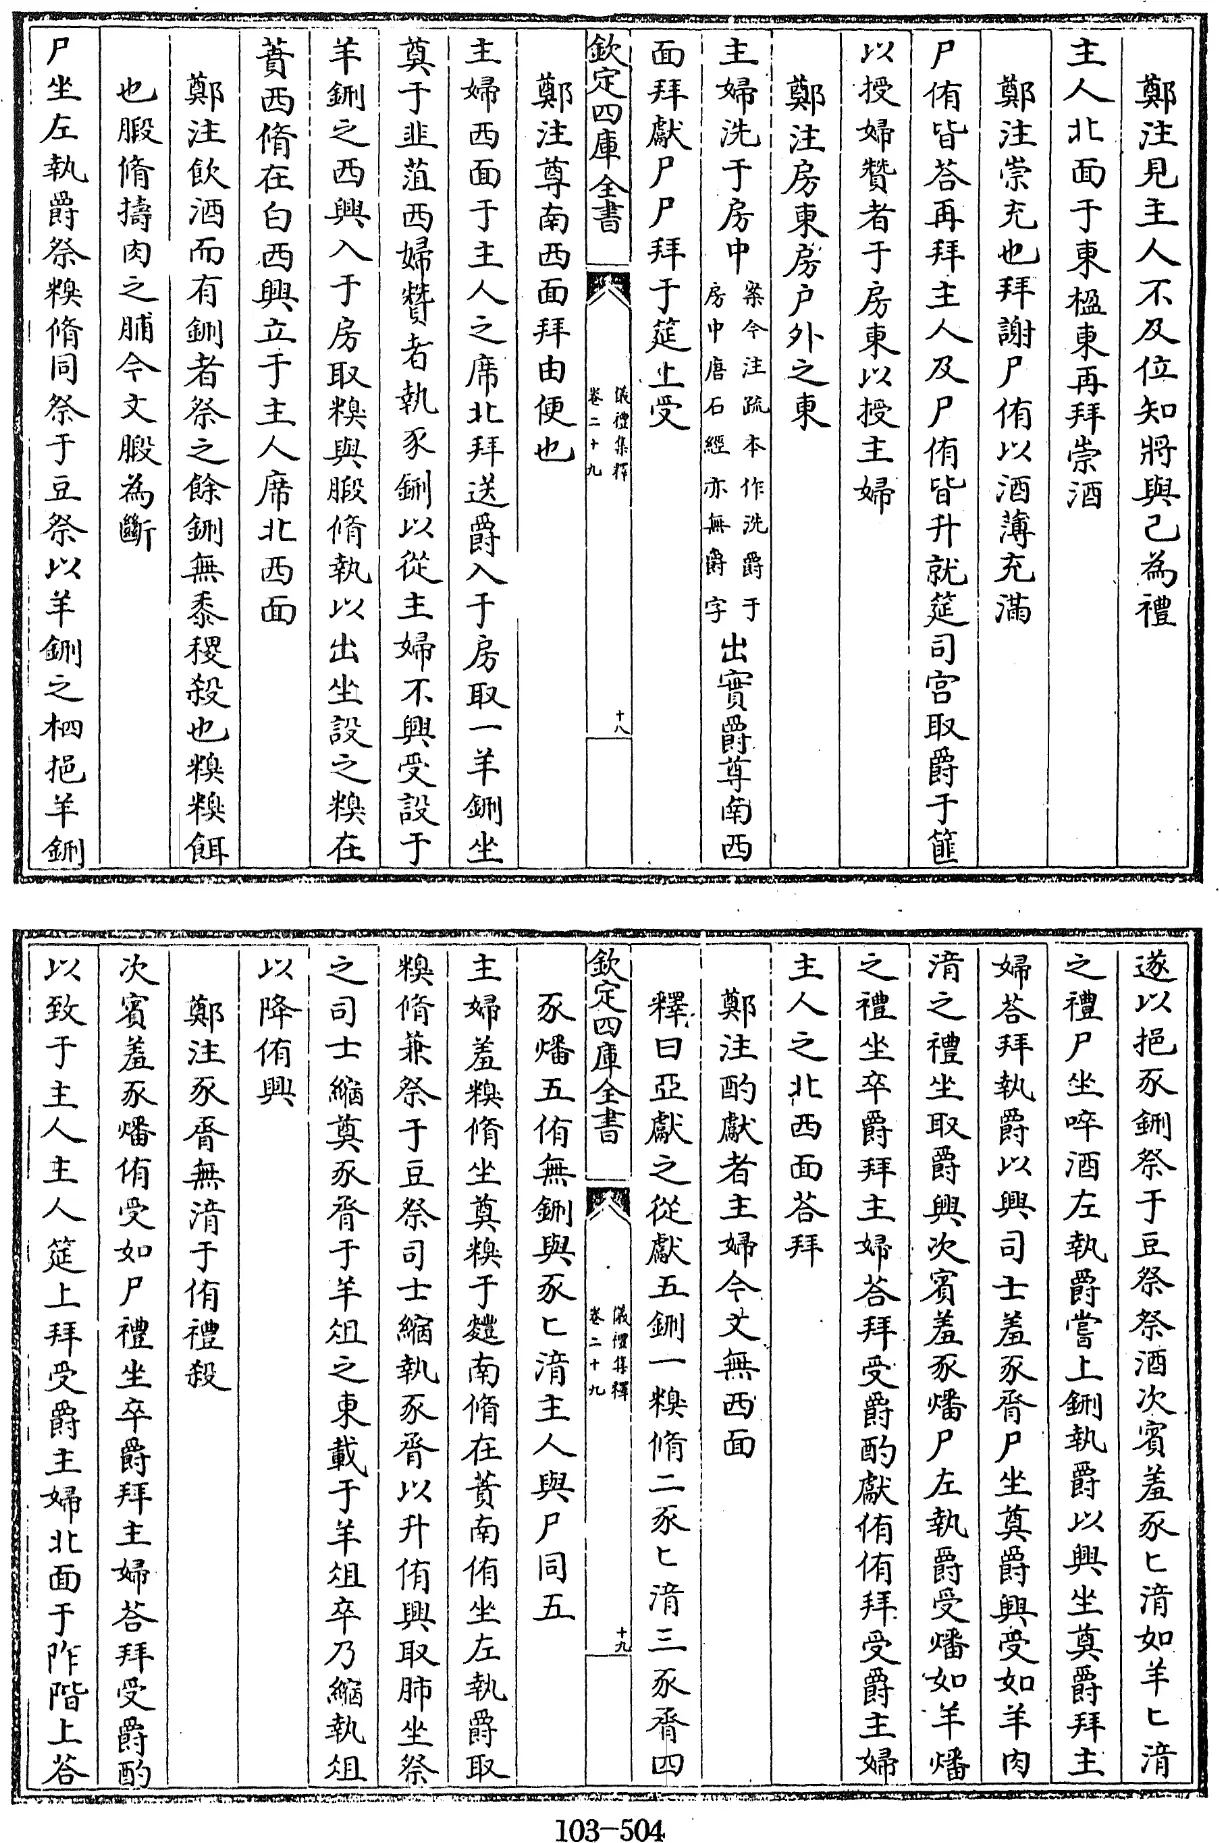 鄭注見主人不及位知將與己為禮
主人北面于東楹東再拜崇酒
鄭注崇充也拜謝尸侑以酒薄充滿
尸侑皆荅再拜主人及尸侑皆升就筵司宫取爵于篚
以授婦贊者于房東以授主婦
鄭注房東房户外之東
主婦洗于房中案今注疏本作洗爵于房中唐石經亦無爵字出實爵尊南西
面拜獻尸尸拜于筵上受
欽定四庫全書
儀禮集釋
卷二十九
十八
鄭注尊南西面拜由便也
主婦西面于主人之席北拜送爵入于房取一羊鉶坐
奠于韭菹西婦贊者執豕鉶以從主婦不興受設于
羊鉶之西興入于房取糗與腶脩執以出坐設之糗在
蕡西脩在白西興立于主人席北西面
鄭注飲酒而有鉶者祭之餘鉶無黍稷殺也糗糗餌
也腶脩擣肉之脯今文腶為斷
尸坐左執爵祭糗脩同祭于豆祭以羊鉶之柶挹羊鉶
遂以挹豕鉶祭于豆祭祭酒次賓羞豕匕湆如羊匕湆
之禮尸坐啐酒左執爵嘗上鉶執爵以興坐奠爵拜主
婦荅拜執爵以興司士羞豕脀尸坐奠爵興受如羊肉
湆之禮坐取爵興次賓羞豕燔尸左執爵受燔如羊燔
之禮坐卒爵拜主婦荅拜受爵酌獻侑侑拜受爵主婦
主人之北西面荅拜
鄭注酌獻者主婦今文無西面
釋曰亞獻之從獻五鉶一糗脩二豕匕湆三豕脀四
欽定四庫全書
儀禮集釋
卷二十九
十九
豕燔五侑無鉶與豕匕湆主人與尸同五
主婦羞糗脩坐奠糗于麷南脩在蕡南侑坐左執爵取
糗脩兼祭于豆祭司士縮執豕脀以升侑興取肺坐祭
之司士縮奠豕脀于羊俎之東載于羊俎卒乃縮執俎
以降侑興
鄭注豕脀無湆于侑禮殺
次賓羞豕燔侑受如尸禮坐卒爵拜主婦荅拜受爵酌
以致于主人主人筵上拜受爵主婦北面于阼階上荅
103-504